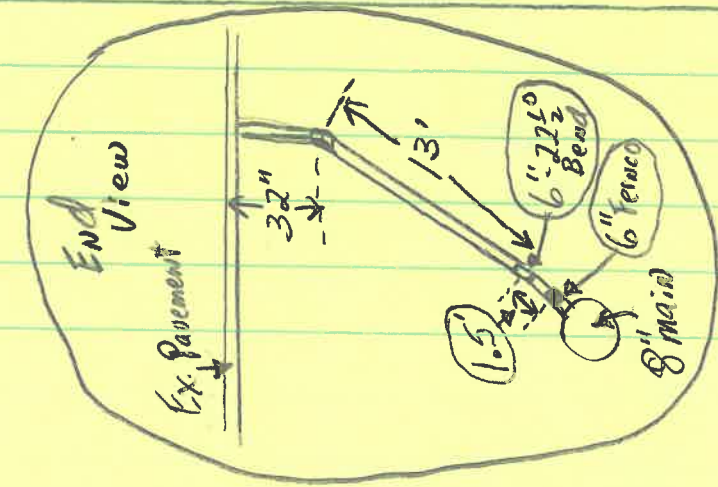 End
View
Ex. Pavement
32"
13'
6"-22½°
Bend
6" Fernco
1.5'
8" main